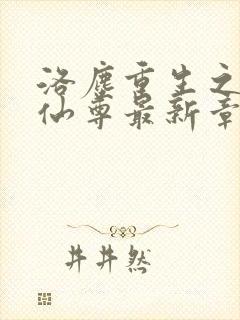 洛塵重生之
仙尊最新章
井井然